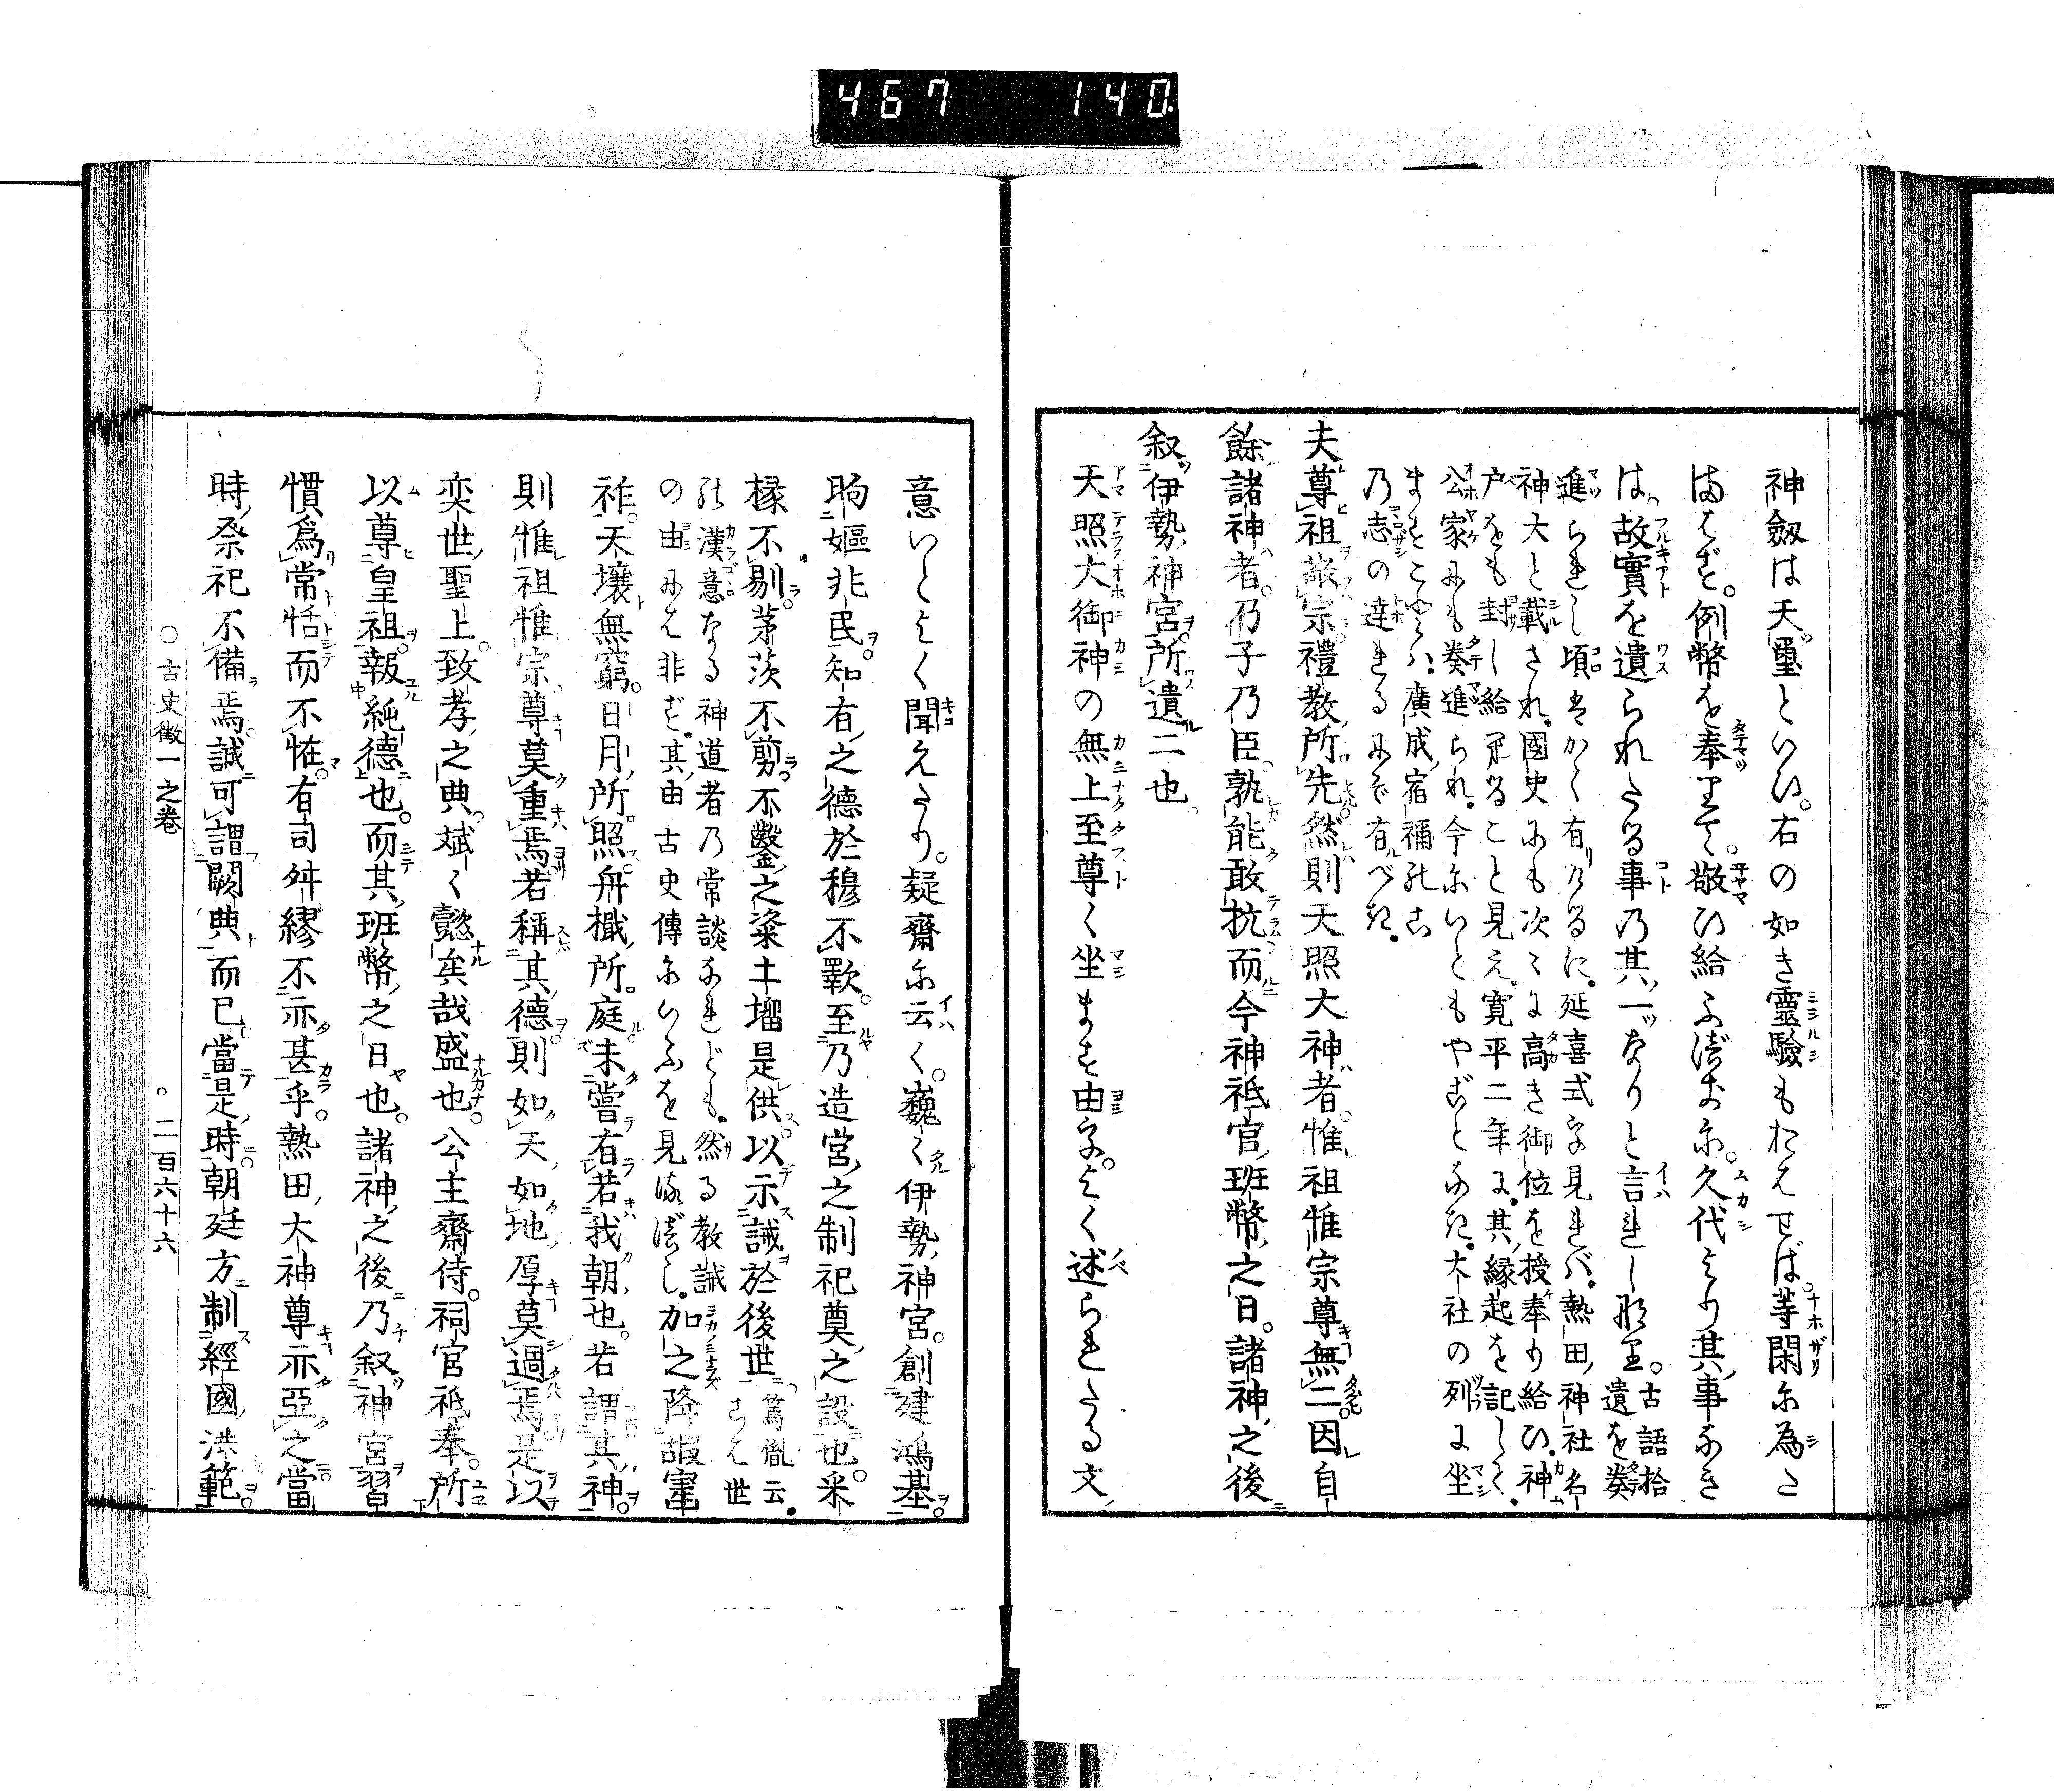 467 140
神劔は天璽といひ。右の如き靈驗もおはせば。等閑尓為さ
は。故實を遺られたる事乃其一なりと言れし那里。古語拾
遺を奏
進られし頃はかく有りけるに。延喜式尓見れバ。熱田神社名
神大と載され。國史尓も次々に高き御位を授奉り給ひ。神
戸をも封し給へること見え。寛平二年に。其縁起を記しく。
公家尓も奏進られ。今尓いともやごとなき。大社の列に坐
乃志の達れる尓ぞ有べき。
夫尊祖敬宗禮教所先。然則天照大神者。惟祖惟宗尊無二。因自
餘諸神者。乃子乃臣。孰能敢抗。而今神祇官班幣之日。諸神之後
叙伊勢神宮。所遺二也。
天照大御神の無上至尊く坐ます由尓。よく述られたる文
意いとよく聞えたり。疑齋尓云く。巍々伊勢神宮。創建鴻基。
昫嫗兆民。知有之德於穆不斁。至乃造営之制祀奠之設也。采
椽不剔。茅茨不剪。不鑿之粢土塯是供。以示誡於後世。篤胤云。
こは世
能漢意なる神道者乃常談なれども。然る教誡
の由尓は非ず。其由古史傳尓いふを見游べし。加之降嘏寧
祚。天壤無窮。日月所照。舟檝所庭。未嘗有若我朝也。若謂其神。
則惟祖惟宗。尊莫重焉。若稱其德。則如天如地。厚莫過焉。是以
奕世聖上。致孝之典。斌々懿矣哉盛也。公主齋侍。祠官祗奉。所
以尊皇祖。報純德也。而其班幣之日也。諸神之後乃叙神宮。習
慣爲常。恬而不恠。有司舛繆不亦甚乎。熱田大神尊亦亞之。當
時祭祀不備焉。誠可謂闕典而已。當是時朝廷方制經國洪範。
○古史徴一之巻
○二百六十六